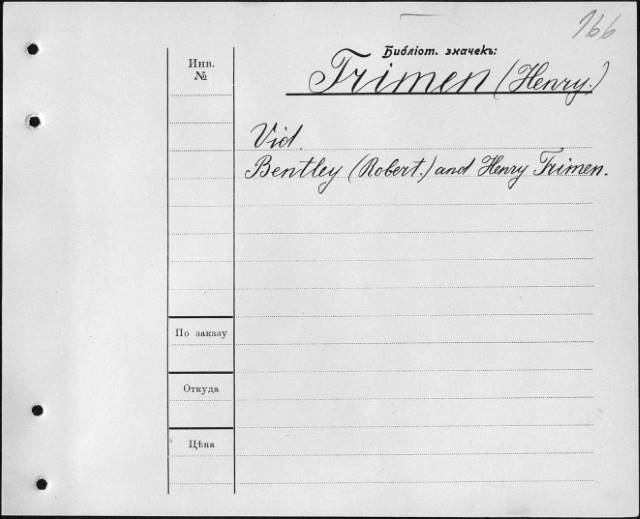 166
Библіот. значекъ:
Trimen (Henry.)
Инв.
№
Vid.
Bentley (Robert.) and Henry Trimen.
По заказу
Откуда
Цѣна